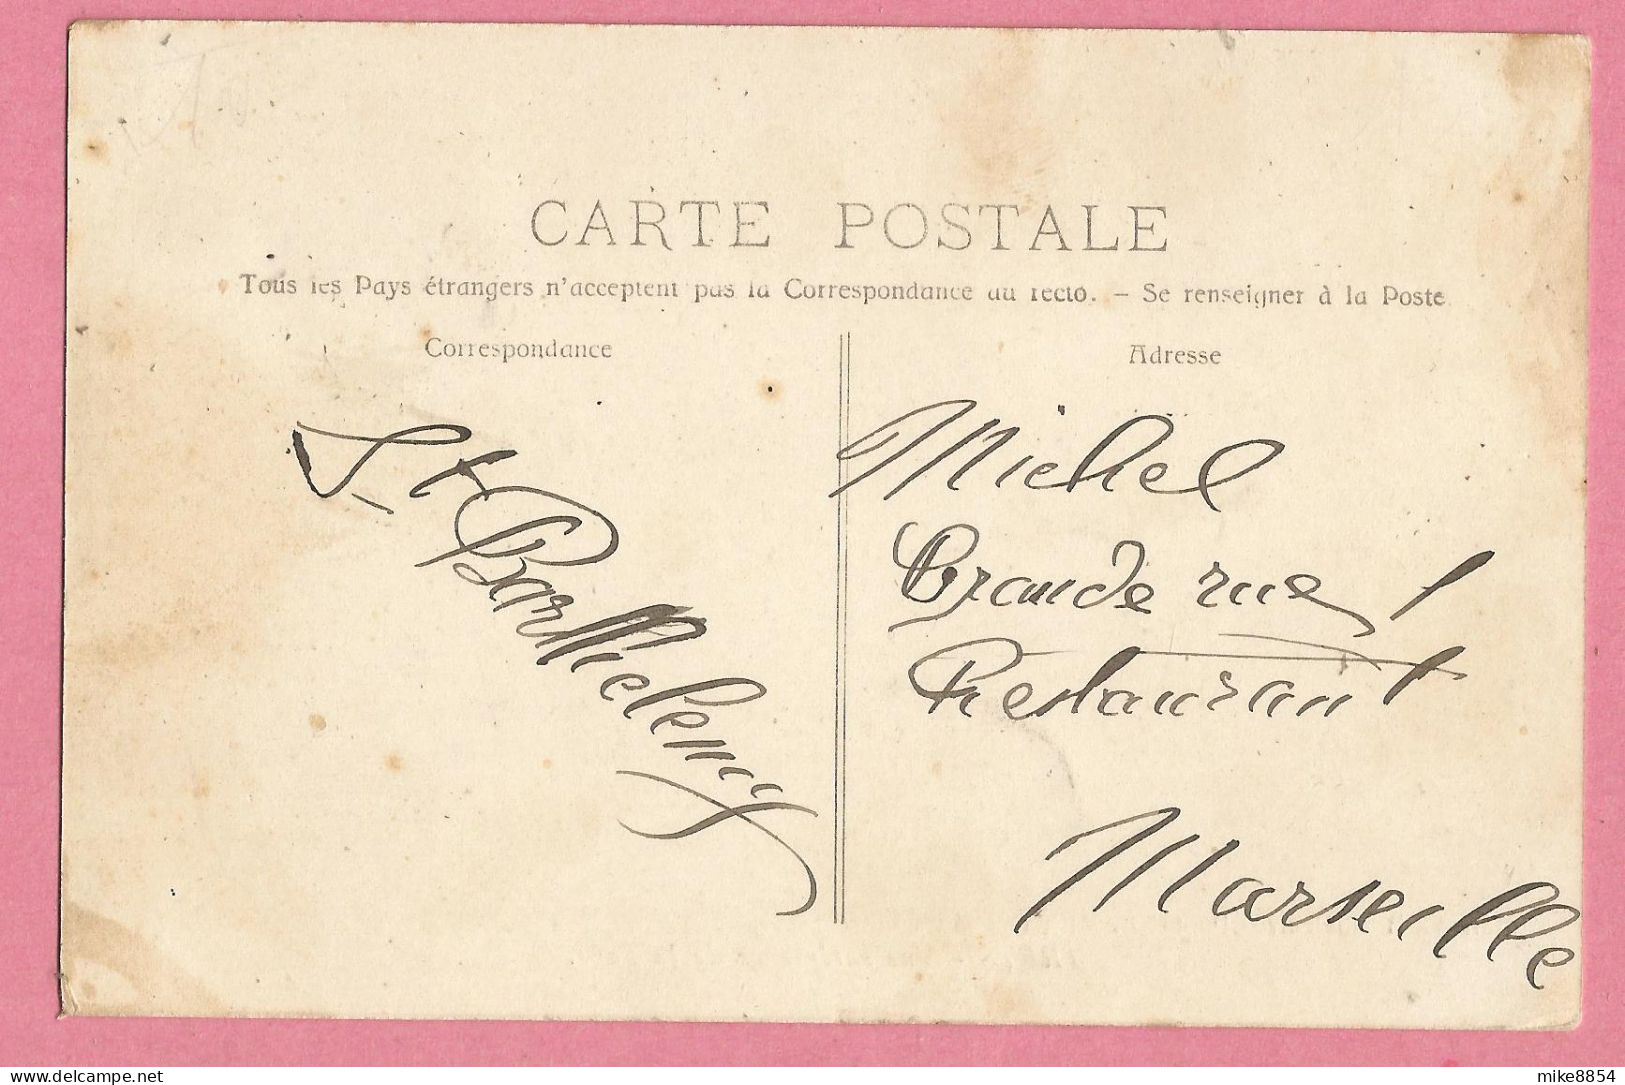 CARTE POSTALE
Tous les Pays étrangers n'acceptent pas la Correspondance au recto. – Se renseigner à la Poste
Correspondance
Adresse
St Barthelemy
Michel
Grande rue 1
Restaurant
Marseille
mike8854